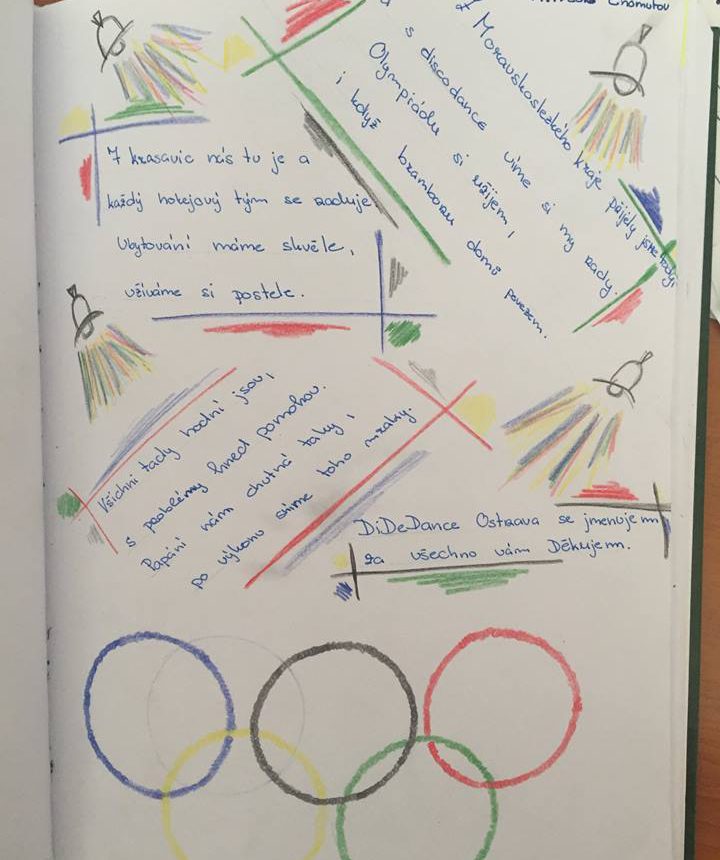 Chomutov
Z Moravskoslezkého kraje přijely jsme tady,
s discodance víme si my rady.
Olympiádu si užijem,
i když bramboru domů povezem.
7 krasavic nás tu je a
každý hokejový tým se raduje
Ubytování máme skvěle,
užíváme si postele.
Všichni tady hodní jsou,
s problémy hned pomohou.
Papání nám chutná taky,
po výkonu sníme toho mraky.
DiDeDance Ostrava se jmenujem
za všechno vám Děkujem.